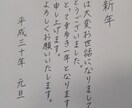 新年
は大変お世話になりまして
とうございました。
とって幸多き一年となりま
申し上げます。
よろしくお願いいたします。
平成三十年 元旦